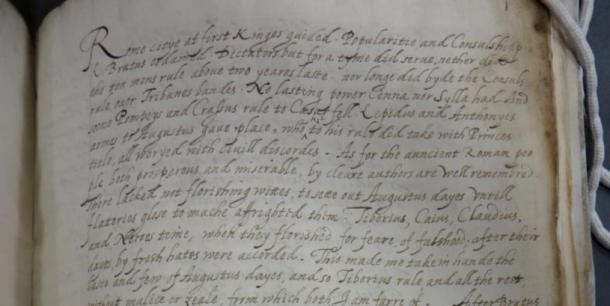 Rome citye at first Kinges guided Popularitie and Consulship
L Brutus ordained. Dictators but for a tyme did serue, nether did
the ten mens rule aboue two yeares laste. nor longe did byde the Consuls
rule ouer Tribunes bandes. No lasting power Cinna nor Sylla had And
soone Pompeys and Crassus rule to Cesar fell Lepidus and Anthonyes
armes to Augustus gaue place, who to his rule did take with Princes
title, all woryed with ciuill discordes. As for the auncient Roman peo
ple both prosperous and miserable, by cleare authors are well remembred.
There lacked not florishing wittes, to sette out Augustus dayes vntill
flateries glose to muche affrighted them. Tiberius, Caius, Claudius,
and Neroes time, when they florished for feare, of falshood. after their
dayes by fresh hates were accorded. This made me take in hande the
and few of Augustus dayes, and so Tiberius rule and all the rest
without malice or zeale, from which both I am farre of. After Brutus